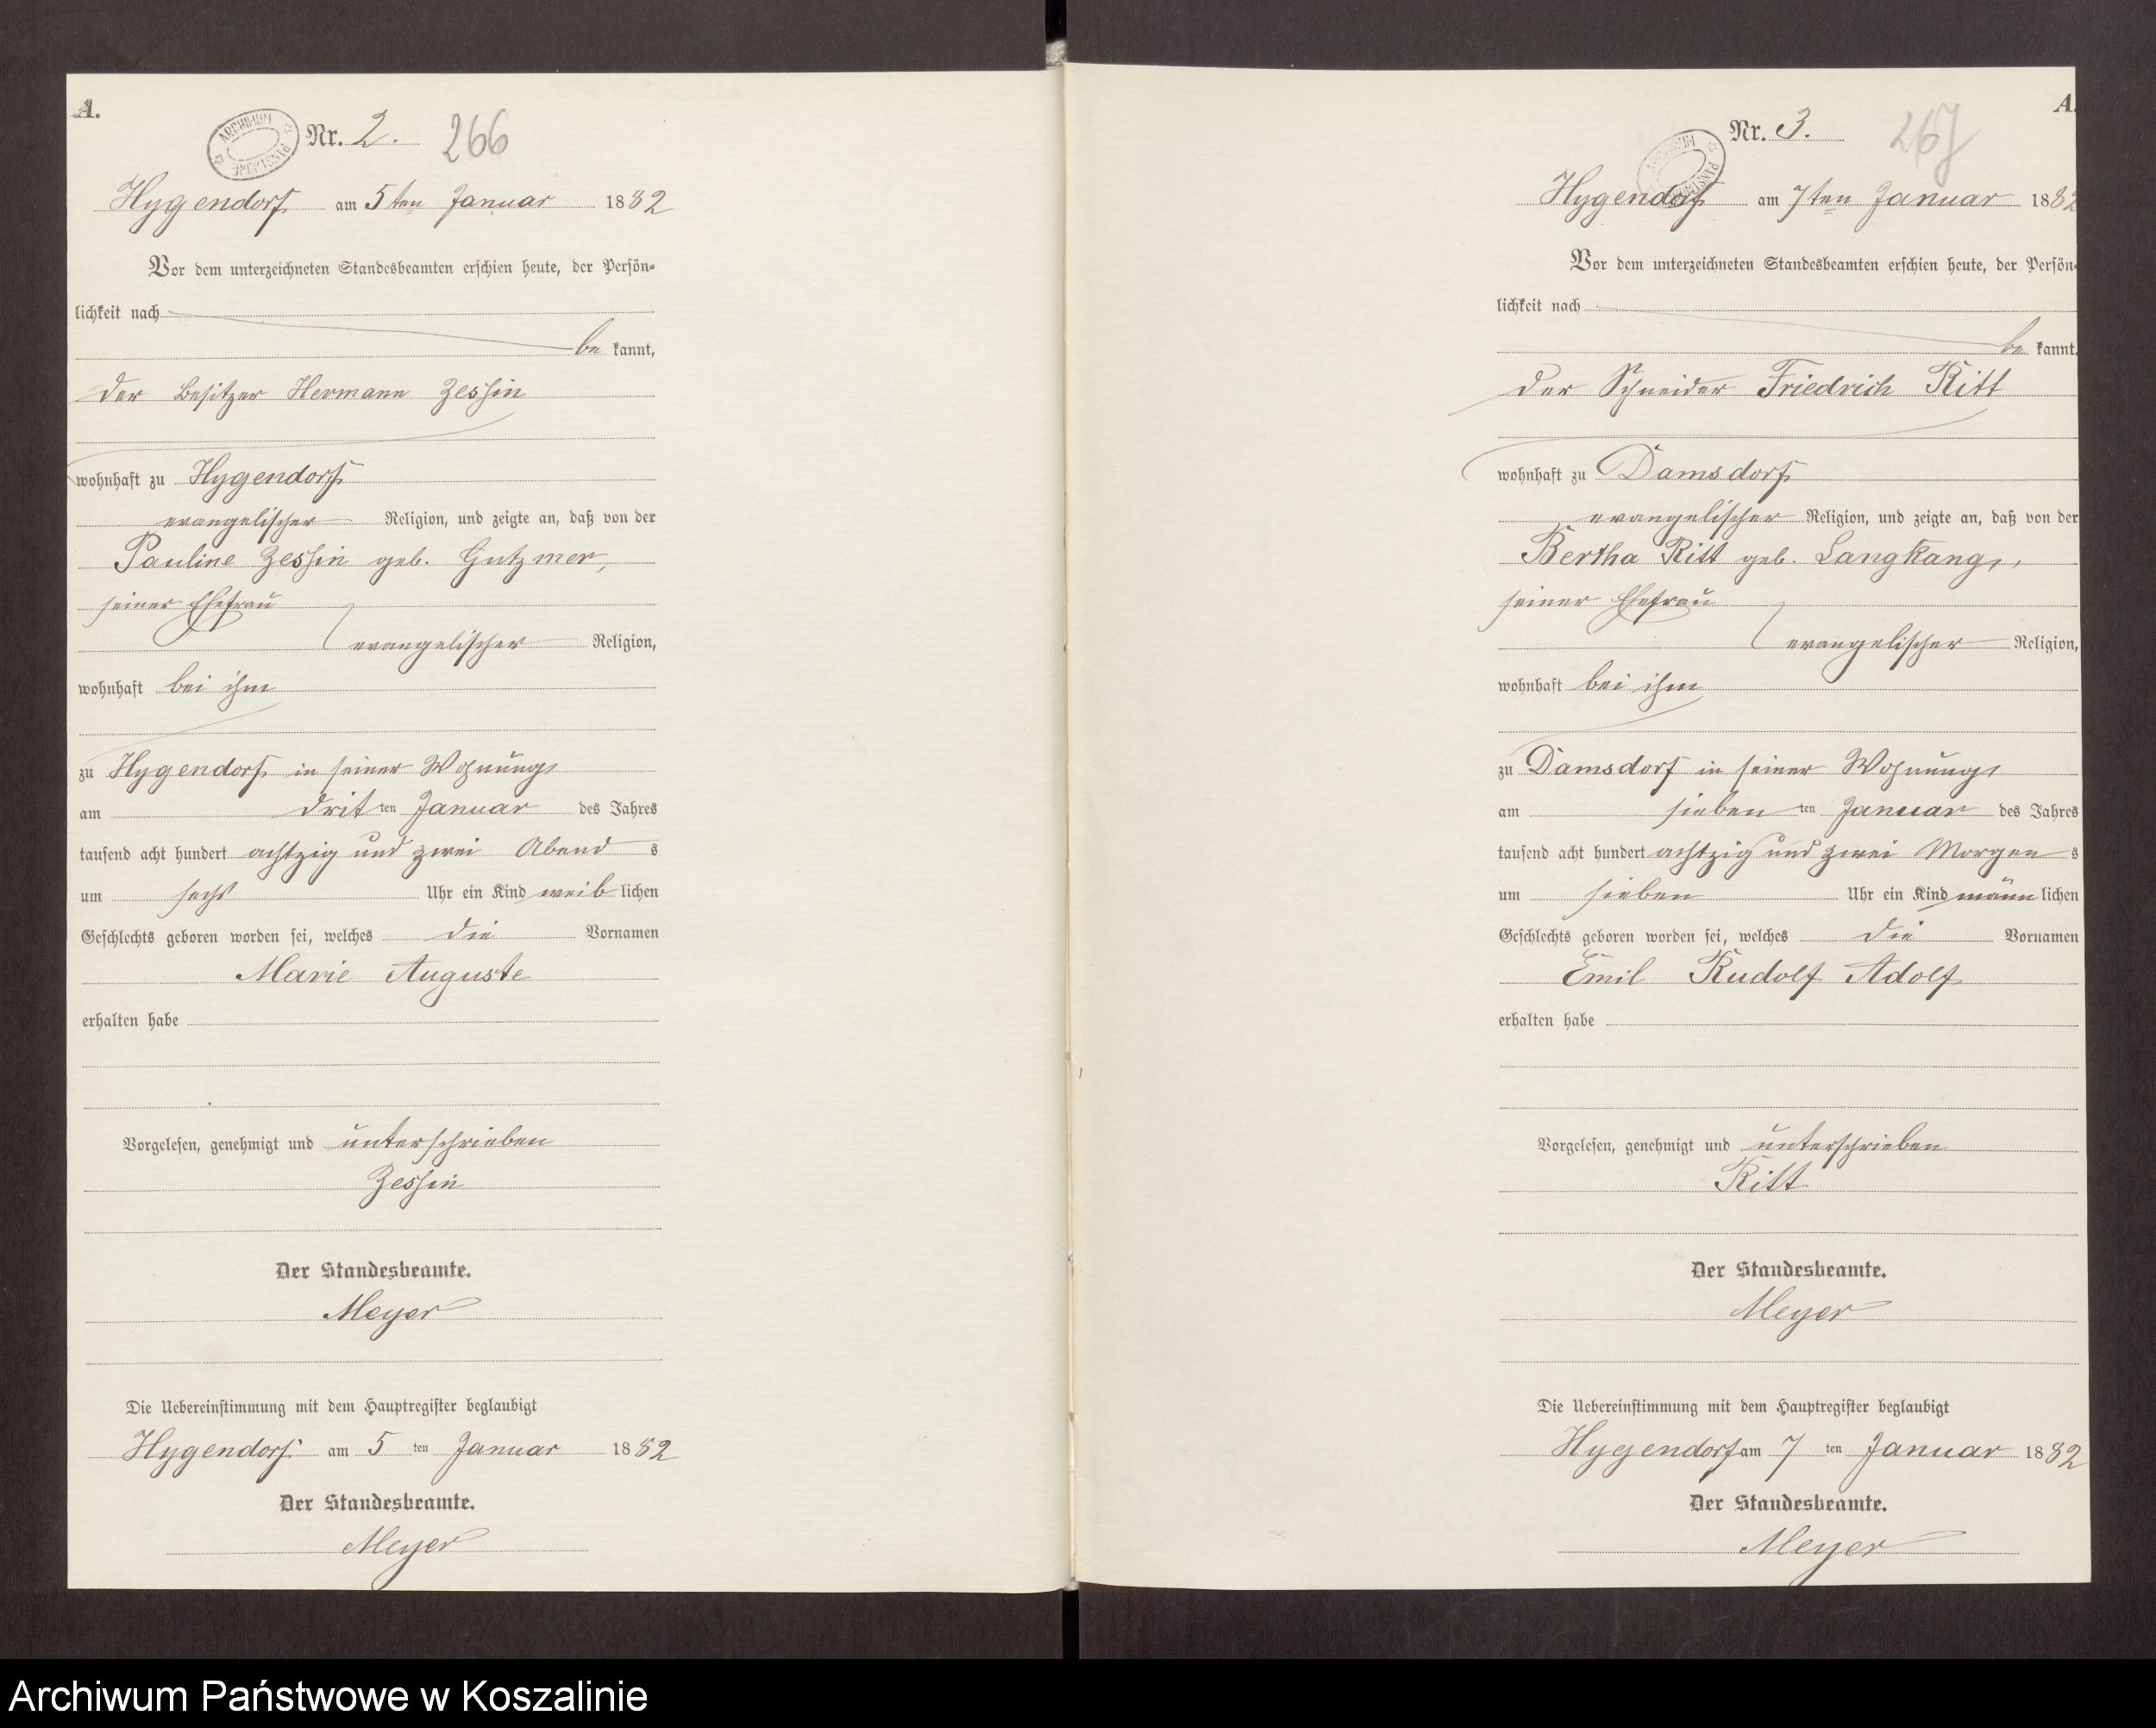 A.
Nr. 2. 266
Hygendorf am 5ten Januar 1882
Vor dem unterzeichneten Standesbeamten erschien heute, der Persön-
lichkeit nach
be kannt,
der Besitzer Hermann Zessin
wohnhaft zu Hygendorf
evangelischer Religion, und zeigte an, daß von der
Pauline Zessin geb. Gutzmer,
seiner Ehefrau
evangelischer Religion,
wohnhaft bei ihm
zu Hygendorf in seiner Wohnung
am drit ten Januar des Jahres
tausend acht hundert achtzig und zwei Abend s
um sechs Uhr ein Kind weib lichen
Geschlechts geboren worden sei, welches die Vornamen
Marie Auguste
erhalten habe
Vorgelesen, genehmigt und unterschrieben
Zessin
Der Standesbeamte.
Meyer
Die Uebereinstimmung mit dem Hauptregister beglaubigt
Hygendorf am 5 ten Januar 1882
Der Standesbeamte.
Meyer
A.
Nr. 3. 267
Hygendorf am 7ten Januar 1882
Vor dem unterzeichneten Standesbeamten erschien heute, der Persön-
lichkeit nach
be kannt,
der Schneider Friedrich Ritt
wohnhaft zu Damsdorf
evangelischer Religion, und zeigte an, daß von der
Bertha Ritt geb. Langkang,
seiner Ehefrau
evangelischer Religion,
wohnhaft bei ihm
zu Damsdorf in seiner Wohnung
am sieben ten Januar des Jahres
tausend acht hundert achtzig und zwei Morgen s
um sieben Uhr ein Kind männ lichen
Geschlechts geboren worden sei, welches die Vornamen
Emil Rudolf Adolf
erhalten habe
Vorgelesen, genehmigt und unterschrieben
Ritt
Der Standesbeamte.
Meyer
Die Uebereinstimmung mit dem Hauptregister beglaubigt
Hygendorf am 7 ten Januar 1882
Der Standesbeamte.
Meyer
Archiwum Państwowe w Koszalinie